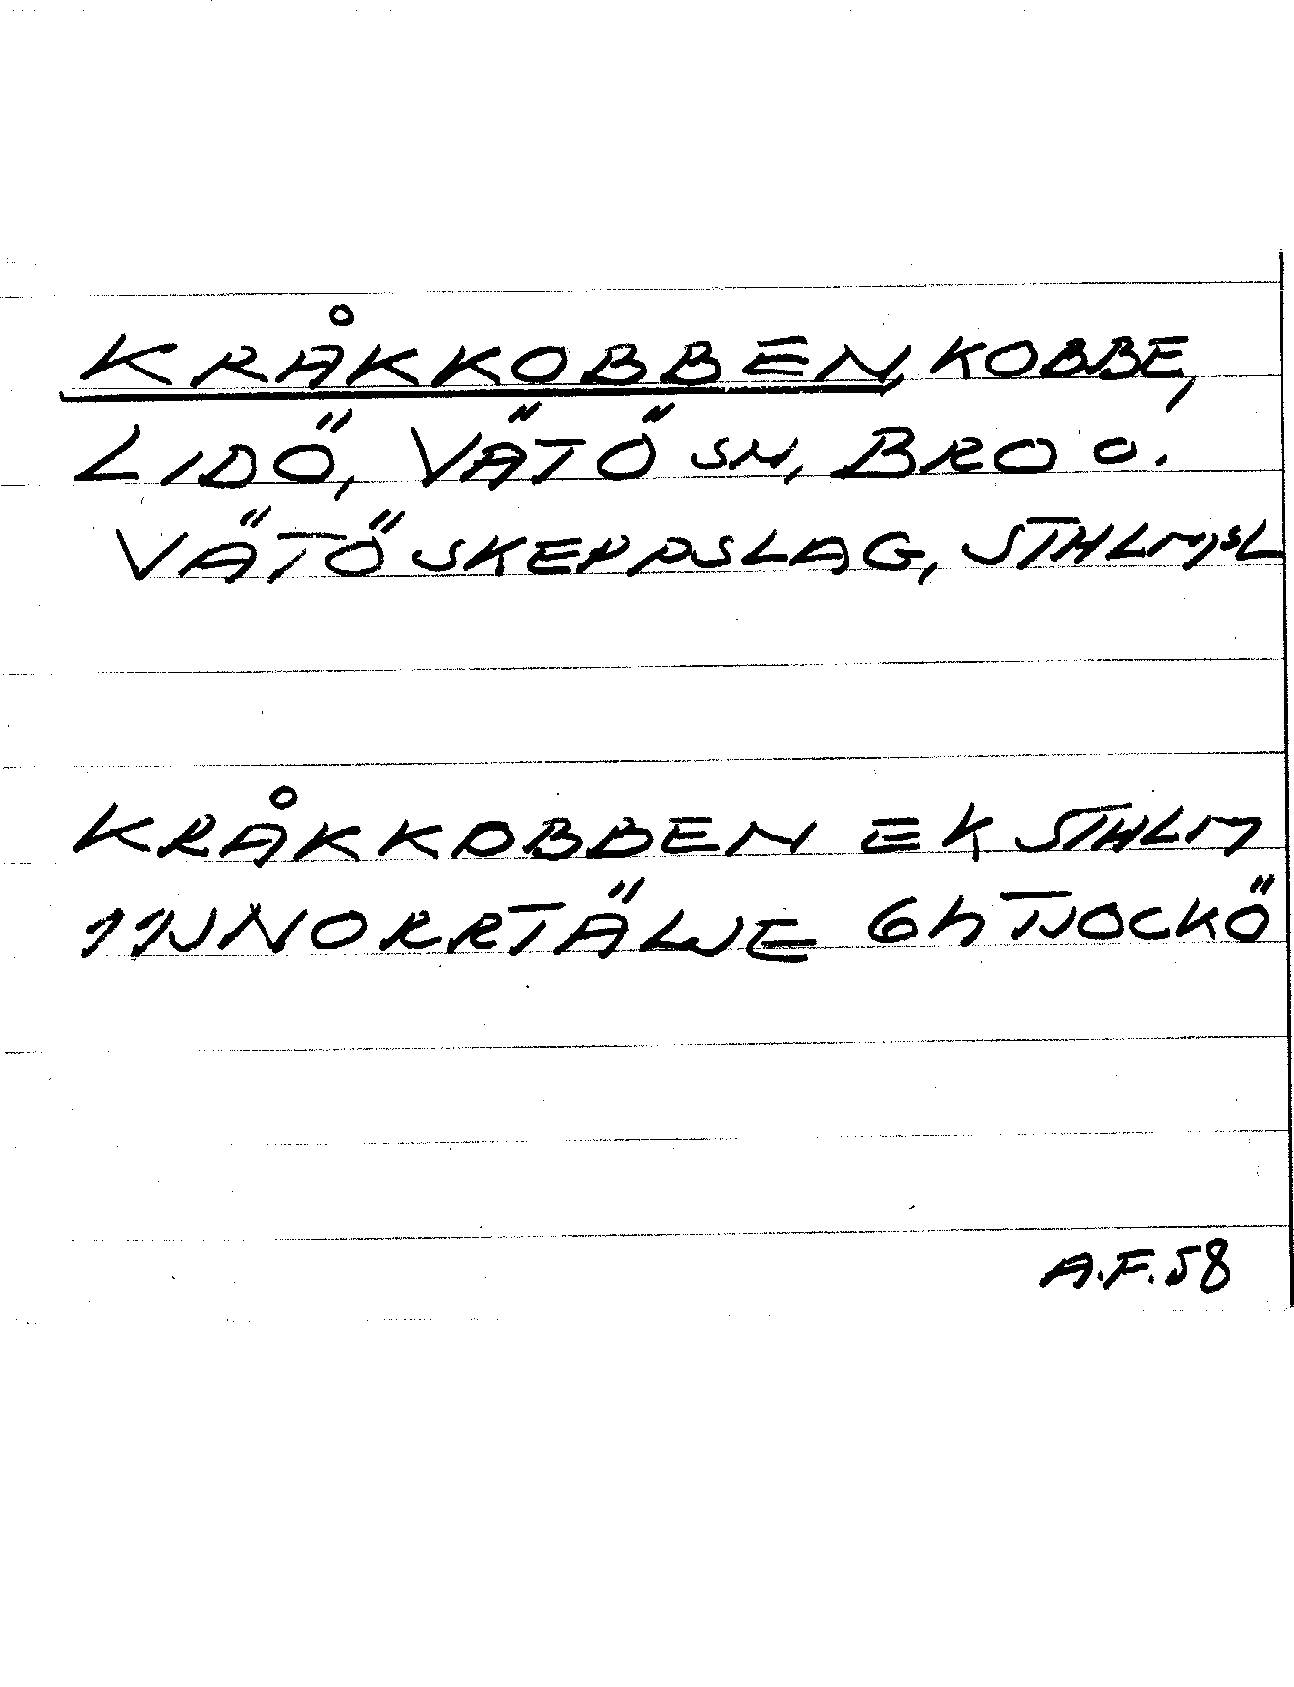 KRÅKKOBBEN, KOBBE,
LIDÖ, VÄTÖ SN, BRO O.
VÄTÖ SKEPPSLAG, STHLM,SL
KRÅKKOBBEN EK STHLM
11J NORRTÄLJE 6h TJOCKÖ
A.F.58